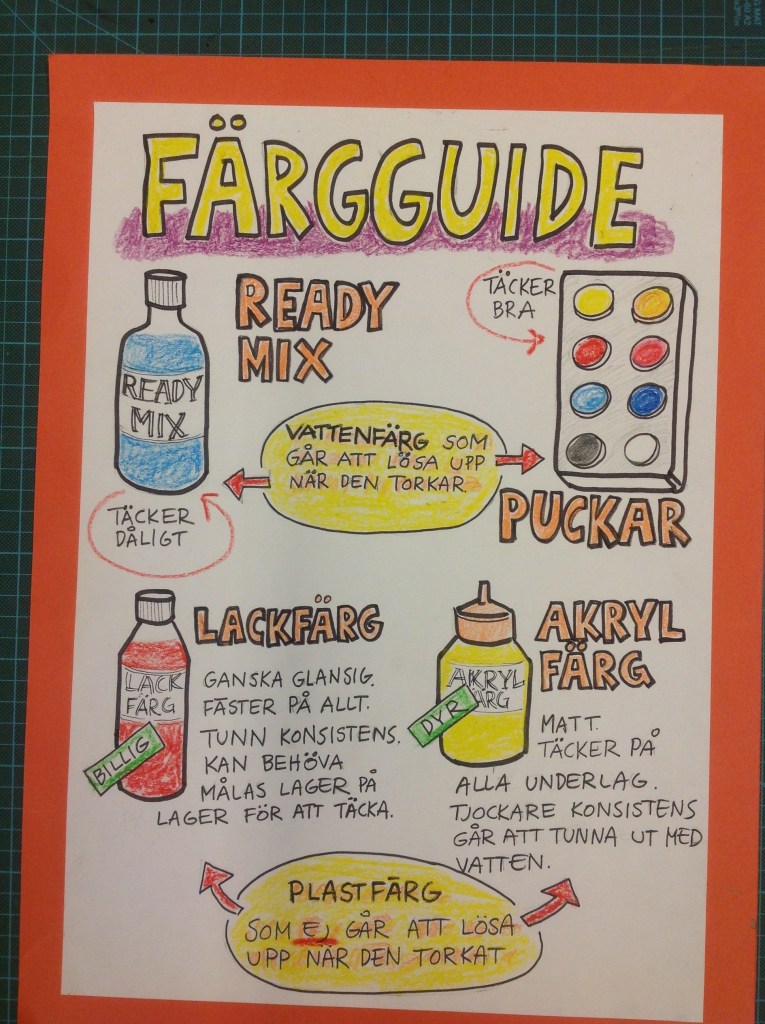 FÄRGGUIDE
READY
MIX
READY
MIX
TÄCKER
BRA
VATTENFÄRG SOM
GÅR ATT LÖSA UPP
NÄR DEN TORKAR.
TÄCKER
DÅLIGT
PUCKAR
LACKFÄRG
LACK
FÄRG
BILLIG
GANSKA GLANSIG.
FÄSTER PÅ ALLT.
TUNN KONSISTENS.
KAN BEHÖVA
MÅLAS LAGER PÅ
LAGER FÖR ATT TÄCKA.
AKRYL
FÄRG
AKRYL
ÄRG
DYR
MATT.
TÄCKER PÅ
ALLA UNDERLAG.
TJOCKARE KONSISTENS
GÅR ATT TUNNA UT MED
VATTEN.
PLASTFÄRG
SOM EJ GÅR ATT LÖSA
UPP NÄR DEN TORKAT